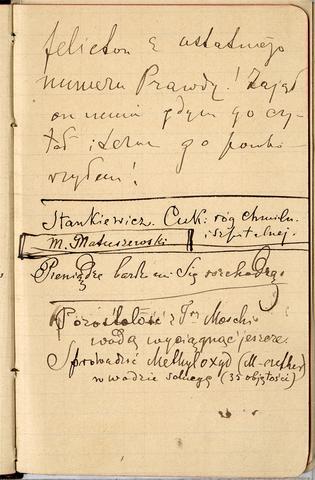 felieton z ostatniego
numeru Prawdy! Zajął
on mnie gdym go czy-
tał i teraz go powtó-
rzyłem!
Stankiewicz. Cuk: róg Chmieln.
i Szpitalnej.
M. Matuszewski
Pieniądze bardzo mi się rozchodzą
Pozostałość z Tra Moschi
wodą wyciągnąć jeszcze.
Sprowadzić Methyloxyd (M-ether)
w wodzie (35 objętości)